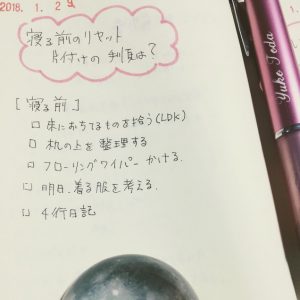 2018. 1. 29
寝る前のリセット
片付けの手順は?
[寝る前]
□ 床におちてるものを拾う(LDK)
□ 机の上を整理する
□ フローリングワイパー かける.
□ 明日、着る服を考える.
□ 4行日記
Yuko Toda